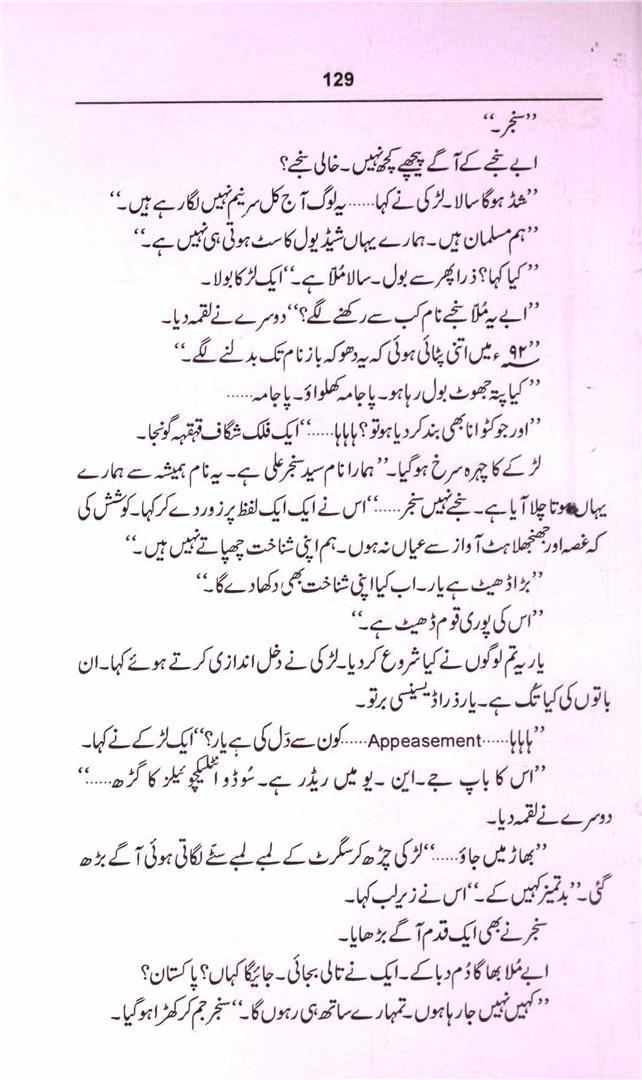 129
’’سنجر۔‘‘
ابے سنجے کے آگے پیچھے کچھ نہیں۔ خالی سنجے؟
’’شڈ ہوگا سالا۔ لڑکی نے کہا......یہ لوگ آج کل سرنیم نہیں لگا رہے ہیں۔‘‘
’’ہم مسلمان ہیں۔ ہمارے یہاں شیڈیول کاسٹ ہوتی ہی نہیں ہے۔‘‘
’’کیا کہا؟ ذرا پھر سے بول۔ سالا مُلّا ہے۔‘‘ ایک لڑکا بولا۔
’’ابے یہ مُلّا سنجے نام کب سے رکھنے لگے؟‘‘ دوسرے نے لقمہ دیا۔
’’۹۲ء میں اتنی پٹائی ہوئی کہ یہ دھوکہ باز نام تک بدلنے لگے۔‘‘
’’کیا پتہ جھوٹ بول رہا ہو۔ پاجامہ کھلواؤ۔ پاجامہ......
’’اور جو کٹوانا بھی بند کر دیا ہو تو؟ ہاہاہا......‘‘ ایک فلک شگاف قہقہہ گونجا۔
لڑکے کا چہرہ سرخ ہوگیا۔ ’’ہمارا نام سید سنجر علی ہے۔ یہ نام ہمیشہ سے ہمارے
یہاں ہوتا چلا آیا ہے۔ سنجے نہیں سنجر......‘‘ اس نے ایک ایک لفظ پر زور دے کر کہا۔ کوشش کی
کہ غصہ اور جھنجھلاہٹ آواز سے عیاں نہ ہوں۔ ہم اپنی شناخت چھپاتے نہیں ہیں۔‘‘
’’بڑا ڈھیٹ ہے یار۔ اب کیا اپنی شناخت بھی دکھا دے گا۔‘‘
’’اس کی پوری قوم ڈھیٹ ہے۔‘‘
یار یہ تم لوگوں نے کیا شروع کردیا۔ لڑکی نے دخل اندازی کرتے ہوئے کہا۔ ان
باتوں کی کیا تُک ہے۔ یار ذرا ڈیسینسی برتو۔
’’ہاہاہا......Appeasement......کون سے دَل کی ہے یار؟‘‘ ایک لڑکے نے کہا۔
’’اس کا باپ جے۔ این ۔یو میں ریڈر ہے۔ سُوڈو انٹلیکچوئیلز کا گڑھ......‘‘
دوسرے نے لقمہ دیا۔
’’بھاڑ میں جاؤ......‘‘ لڑکی چڑھ کر سگرٹ کے لمبے لمبے سٹے لگاتی ہوئی آگے بڑھ
گئی۔ ’’بدتمیز کہیں کے۔‘‘ اس نے زیرلب کہا۔
سنجر نے بھی ایک قدم آگے بڑھایا۔
ابے مُلا بھاگا دُم دبا کے۔ ایک نے تالی بجائی۔ جائیگا کہاں؟ پاکستان؟
’’کہیں نہیں جا رہا ہوں۔ تمہارے ساتھ ہی رہوں گا۔‘‘ سنجر جم کر کھڑا ہوگیا۔